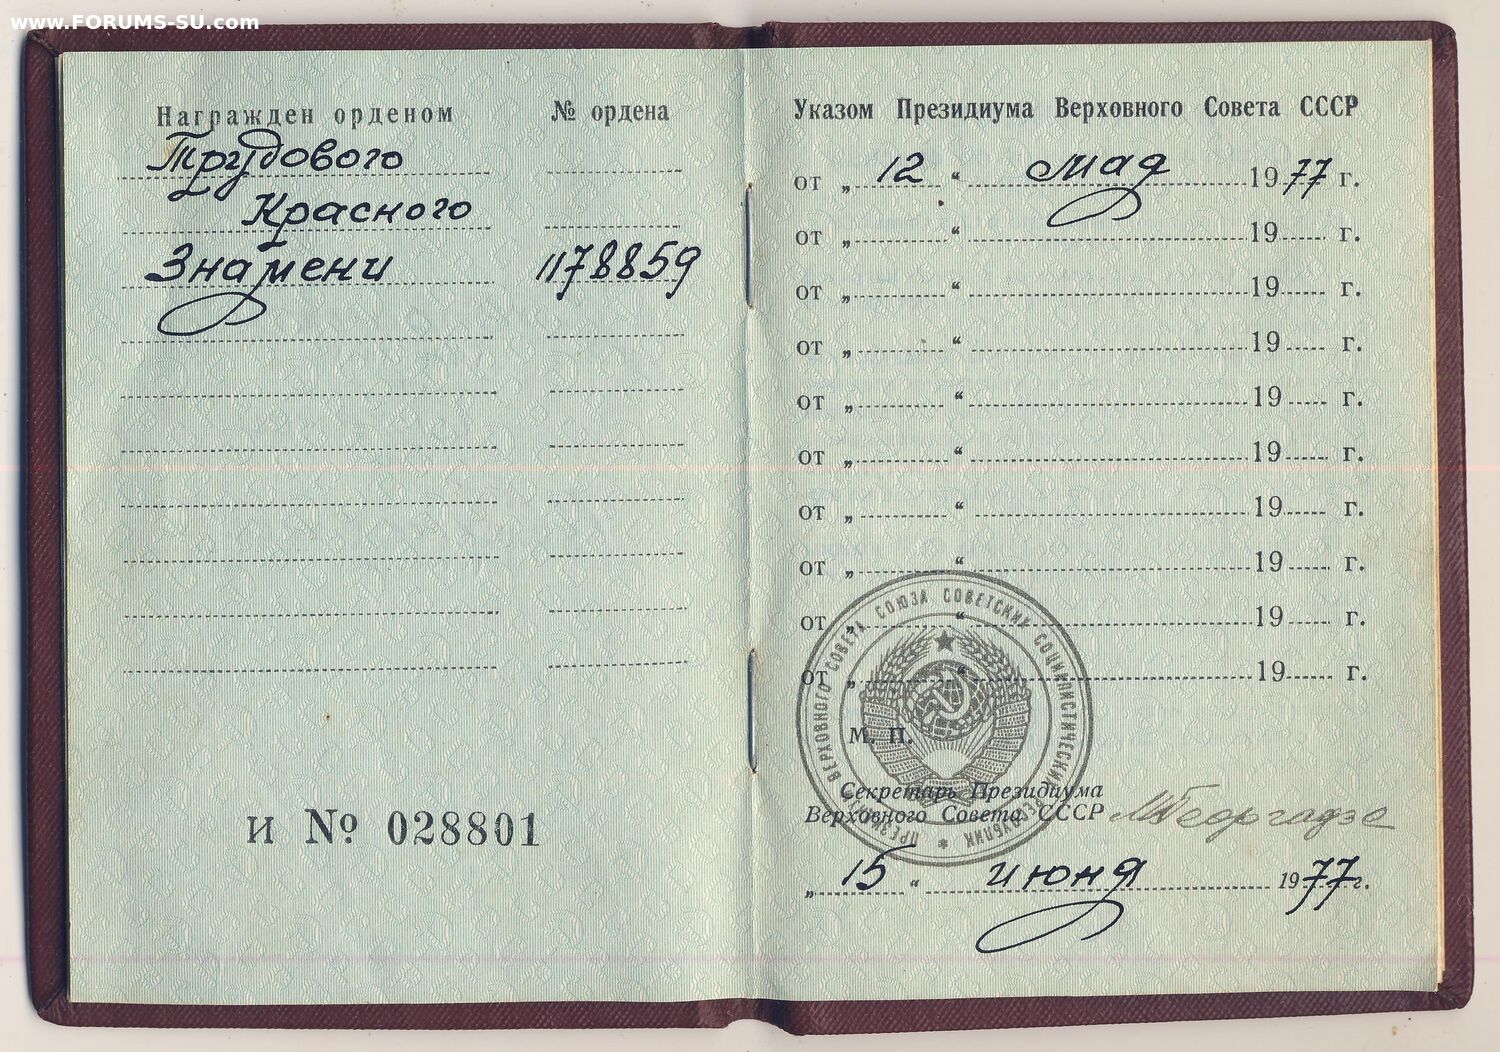 www.FORUMS-SU.com
Награжден орденом
№ ордена
Трудового
Красного
Знамени
1178859
И № 028801
Указом Президиума Верховного Совета СССР
от „ 12 “ мая 1977 г.
от „ “ 19 г.
от „ “ 19 г.
от „ “ 19 г.
от „ “ 19 г.
от „ “ 19 г.
от „ “ 19 г.
от „ “ 19 г.
от „ “ 19 г.
от „ “ 19 г.
ПРЕЗИДИУМ ВЕРХОВНОГО СОВЕТА СОЮЗА СОВЕТСКИХ СОЦИАЛИСТИЧЕСКИХ РЕСПУБЛИК *
М. П.
Секретарь Президиума
Верховного Совета СССР
МГеоргадзе
„ 15 “ июня 1977 г.